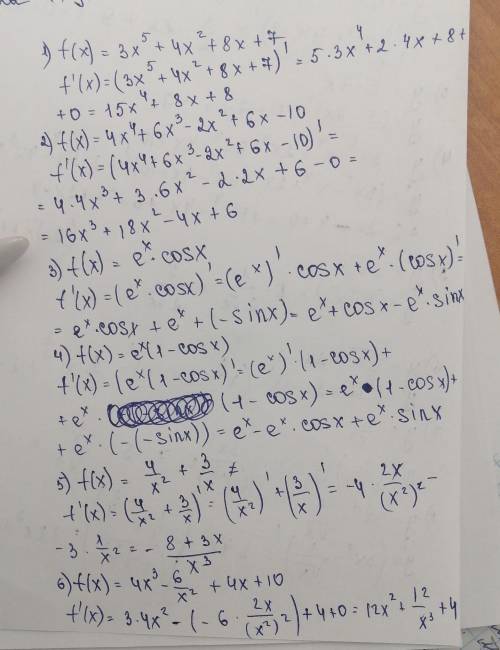 1) f(x) = 3x⁵ + 4x² + 8x + 7
f'(x) = (3x⁵ + 4x² + 8x + 7)' = 5·3x⁴ + 2·4x + 8 +
+0 = 15x⁴ + 8x + 8
2) f(x) = 4x⁴ + 6x³ - 2x² + 6x - 10
f'(x) = (4x⁴ + 6x³ - 2x² + 6x - 10)' =
= 4·4x³ + 3·6x² - 2·2x + 6 - 0 =
= 16x³ + 18x² - 4x + 6
3) f(x) = eˣ·cosx
f'(x) = (eˣ·cosx)' = (eˣ)'·cosx + eˣ·(cosx)' =
= eˣ·cosx + eˣ + (-sinx) = eˣ + cosx - eˣ·sinx
4) f(x) = eˣ(1-cosx)
f'(x) = (eˣ(1-cosx)' = (eˣ)'·(1-cosx) +
+ eˣ· (1-cosx) = eˣ·(1-cosx) +
+ eˣ·(-(-sinx)) = eˣ - eˣ·cosx + eˣ·sinx
5) f(x) = 4/x² + 3/x
f'(x) = (4/x² + 3/x)' = (4/x²)' + (3/x)' = -4·2x/(x²)² -
-3·1/x² = - 8+3x/x³
6) f(x) = 4x³ - 6/x² + 4x + 10
f'(x) = 3·4x² - (-6·2x/(x²)²) + 4 + 0 = 12x² + 12/x³ + 4